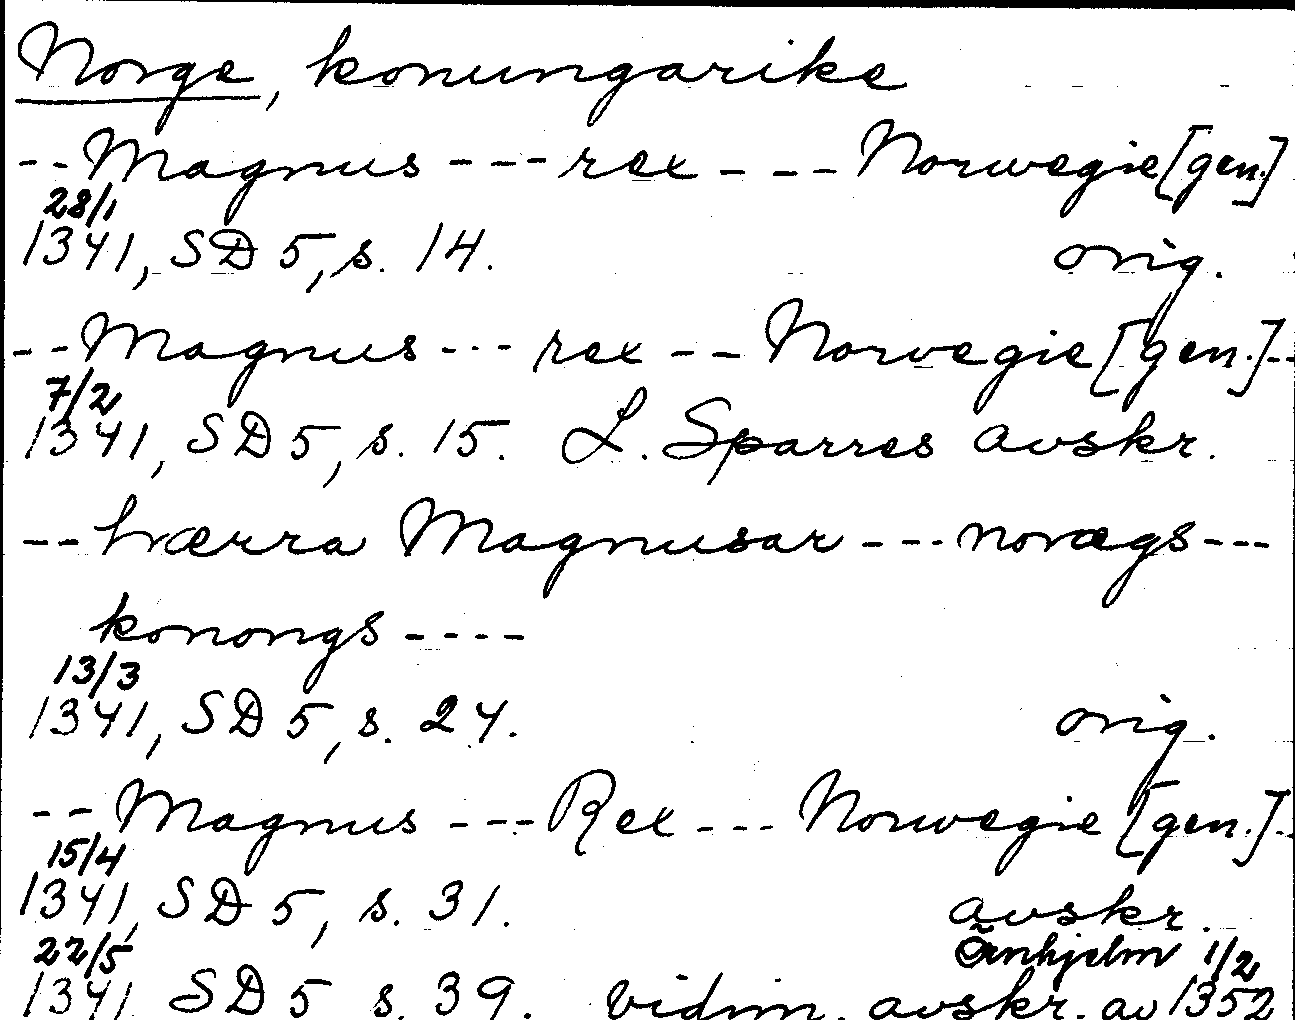 Norge, konungarike
--Magnus --- rex --- Norwegie [gen.]
28/1
1341, SD 5, s. 14. orig.
--Magnus --- rex -- Norwegie [gen.]--
7/2
1341, SD 5, s. 15. L. Sparres avskr.
--hærra Magnusar --- norægs ---
konongs ----
13/3
1341, SD 5, s. 24. orig.
--Magnus --- Rex --- Norwegie [gen.]--
15/4
1341, SD 5, s. 31. avskr.
22/5 Örnhjelm 1/2
1341 SD 5 s. 39. vidim. avskr. av 1352